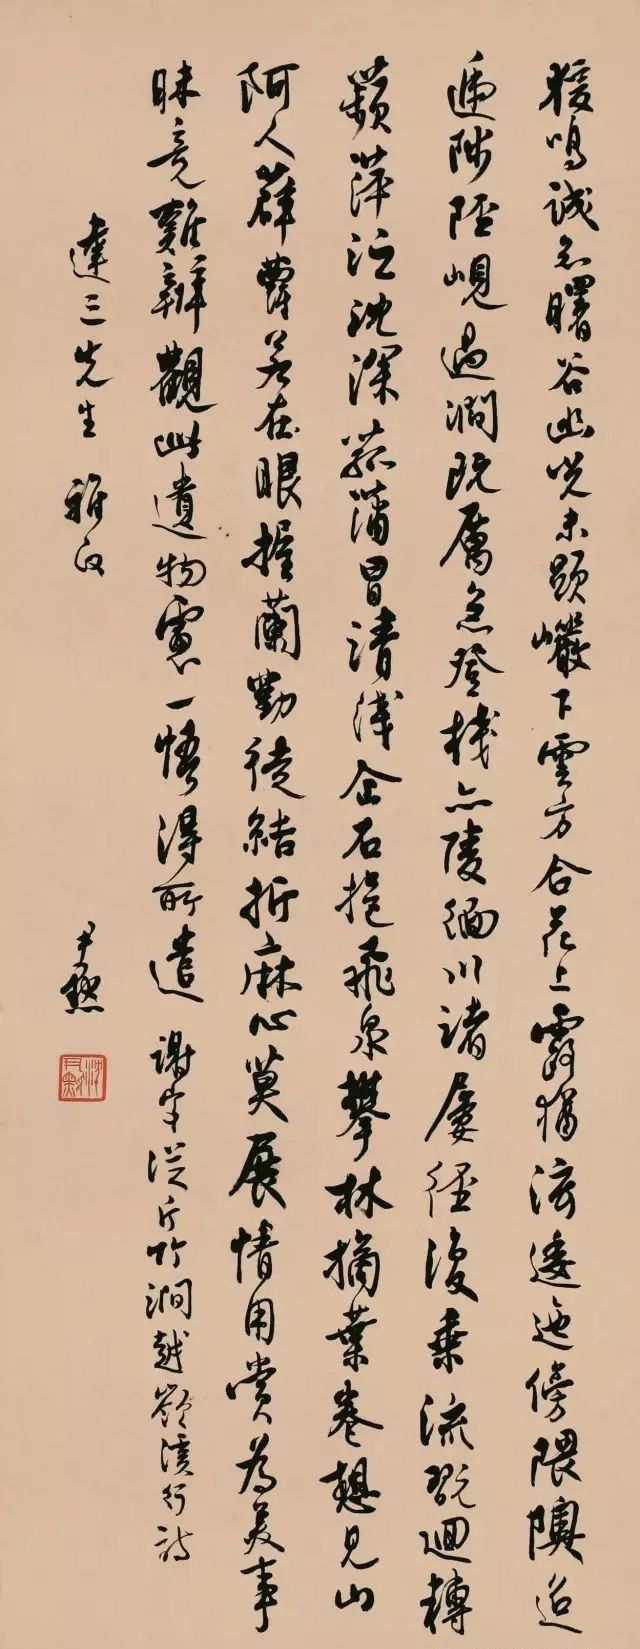 猨鳴誠知曙谷幽光未顯巖下雲方合花上露猶泫逶迤傍隈隩迢
遞陟陘峴過澗既厲急登棧亦陵緬川渚屢徑復乗流翫迴轉
蘋萍泛沈深菰蒲冒清淺企石挹飛泉攀林摘葉卷想見山
阿人薜蘿若在眼握蘭勤徒結折麻心莫展情用賞為美事
昧竟難辨觀此遺物慮一悟得所遣 謝客從斤竹澗越嶺溪行詩
達三先生 雅正
尹默